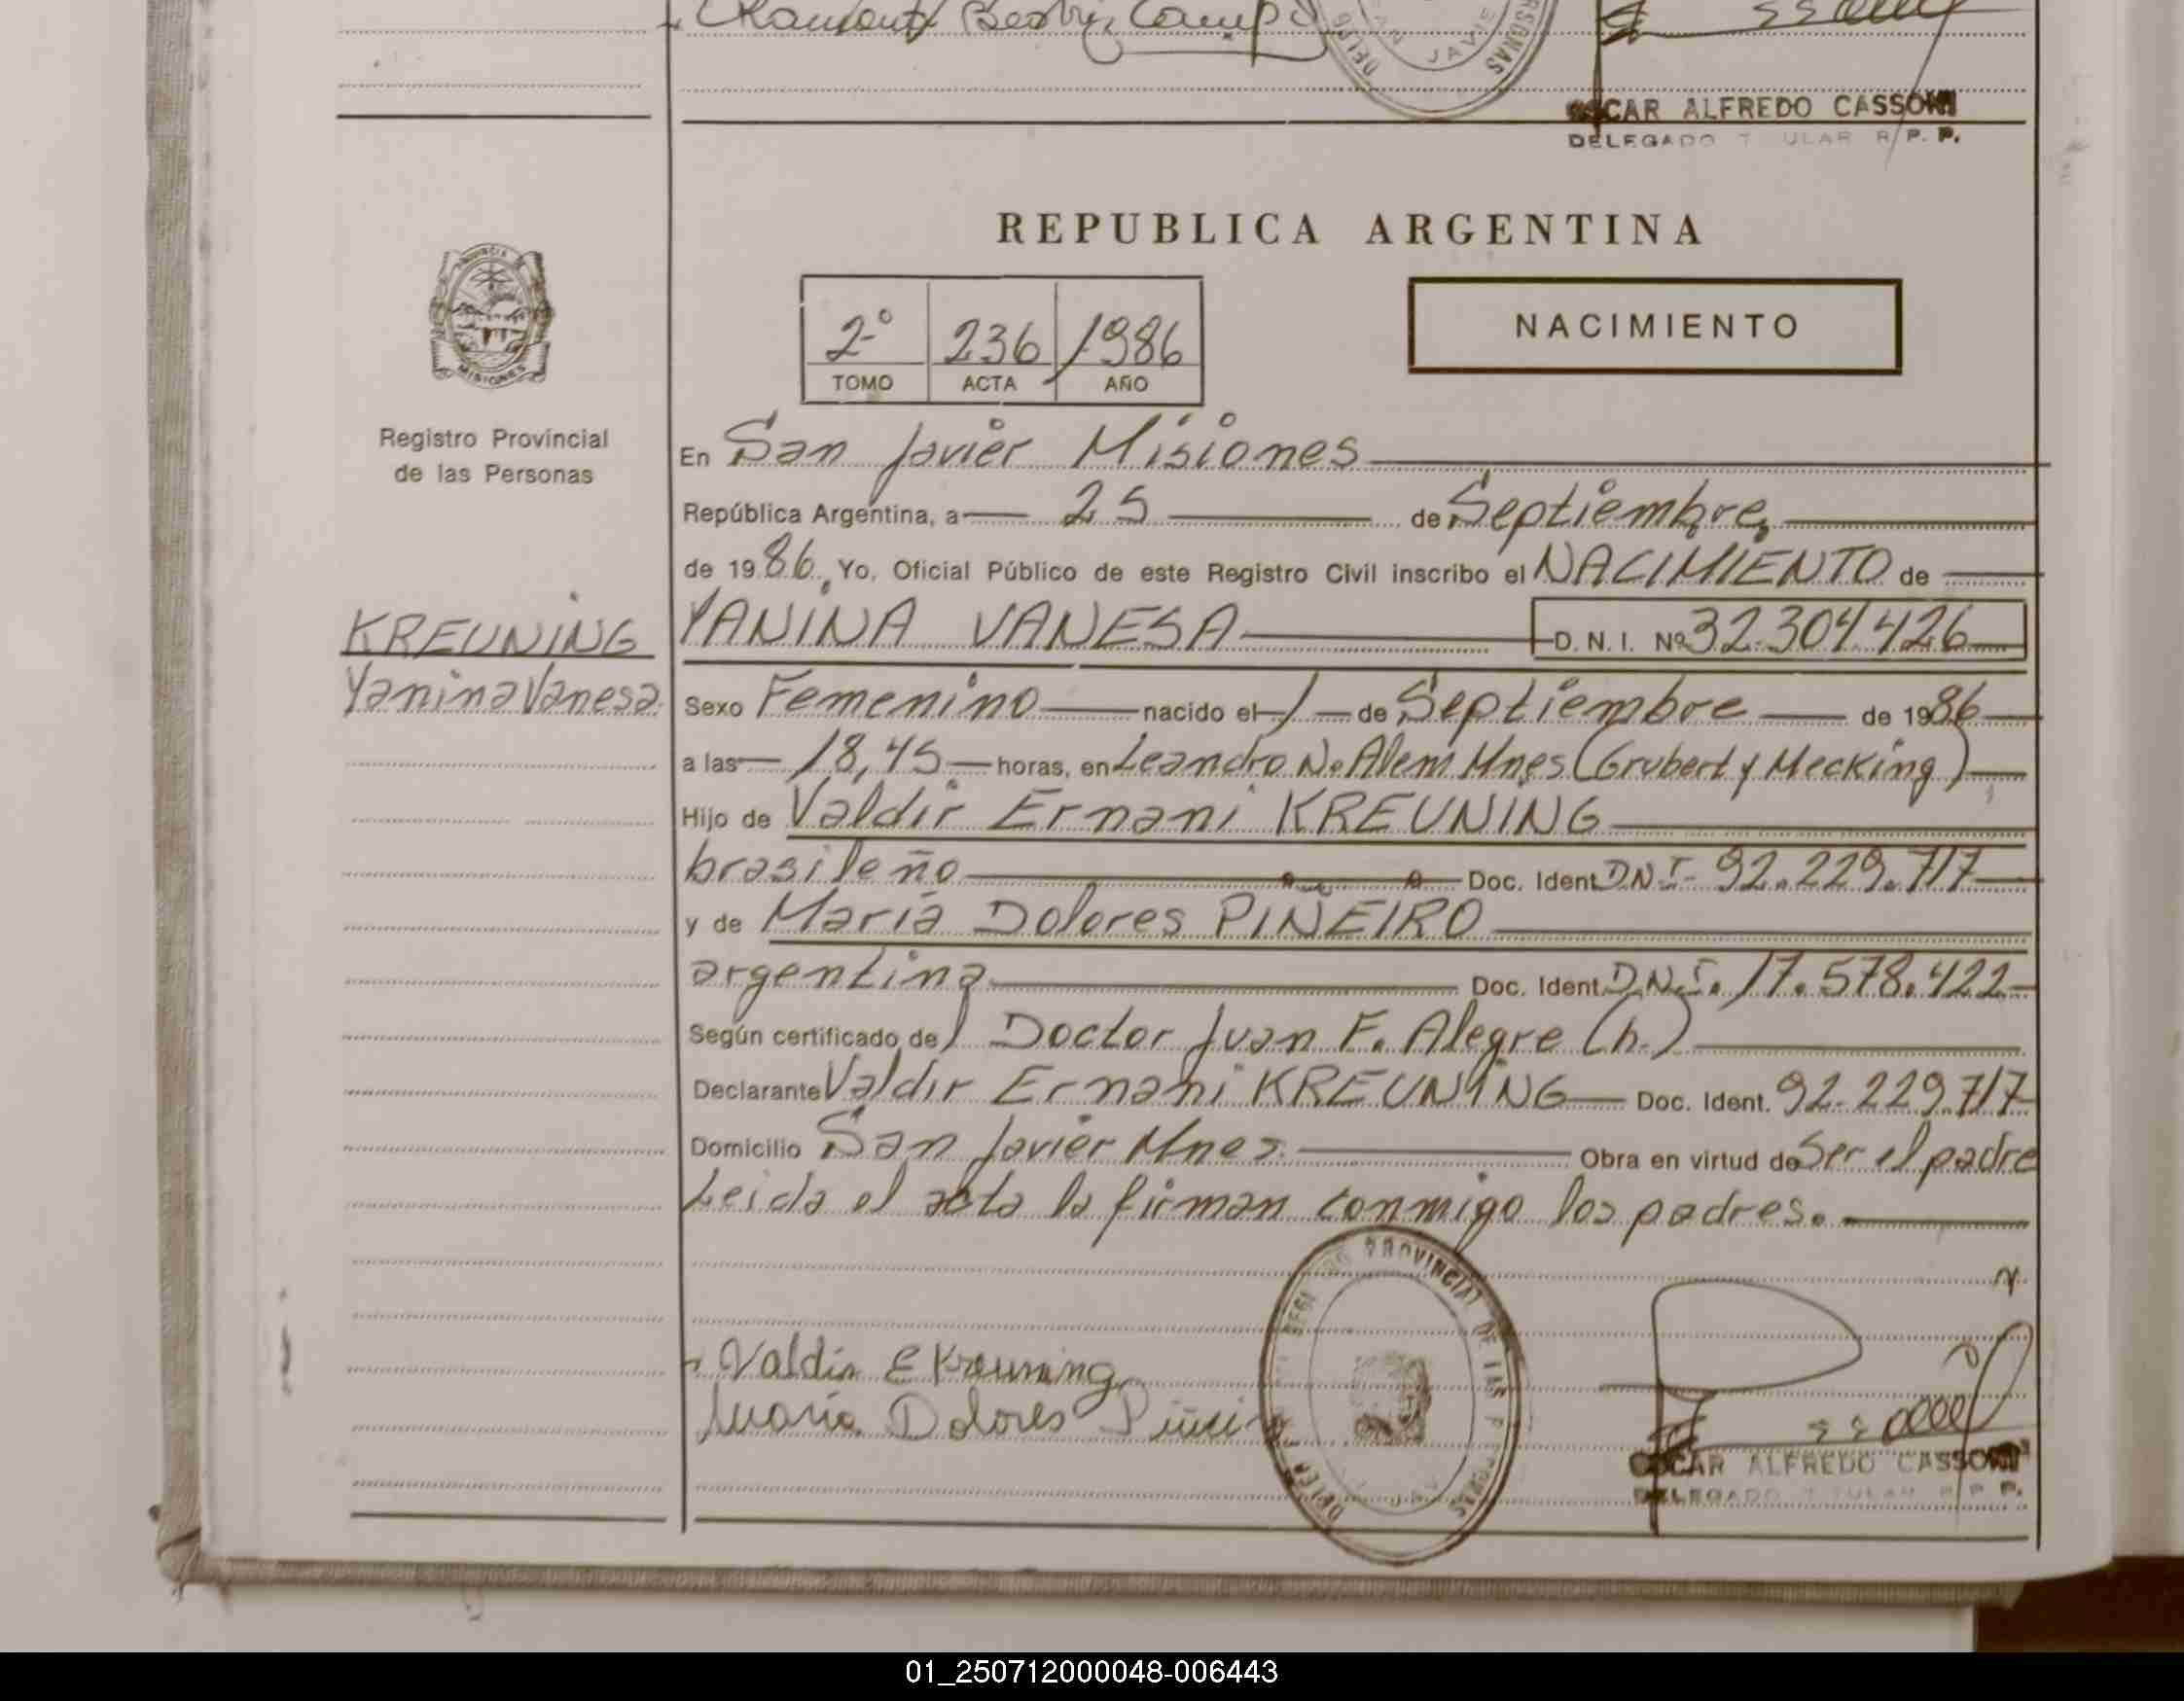 Beatriz
SAN JAVIE
OSCAR ALFREDO CASSONI
DELEGADO T ULAR R. P. P.
REPUBLICA ARGENTINA
PROVINCIA DE
MISIONES
2º 236 1986
TOMO ACTA AÑO
NACIMIENTO
Registro Provincial
de las Personas
En San Javier Misiones
República Argentina, a 25 de Septiembre
de 1986, Yo, Oficial Público de este Registro Civil inscribo el NACIMIENTO de
KREUNING
YANINA VANESA D. N. I. Nº 32.304.426
Yanina Vanesa
Sexo Femenino nacido el 1 de Septiembre de 1986
a las 18,45 horas, en Leandro N. Alem Mnes (Grubert y Mecking)
Hijo de Valdir Ernani KREUNING
brasileño Doc. Ident. D.N.I. 92.229.717
y de María Dolores PIÑEIRO
argentina Doc. Ident. D.N.I. 17.578.422
Según certificado del Doctor Juan F. Alegre (h.)
Declarante Valdir Ernani KREUNING Doc. Ident. 92.229.717
Domicilio San Javier Mnes. Obra en virtud de Ser el padre
Leida el acta la firman conmigo los padres.
PROVINCIAL DE LAS P
Valdir E Kreuning
María Dolores Piñeiro
OSCAR ALFREDO CASSONI
DELEGADO T TULAR R P P.
01_250712000048-006443